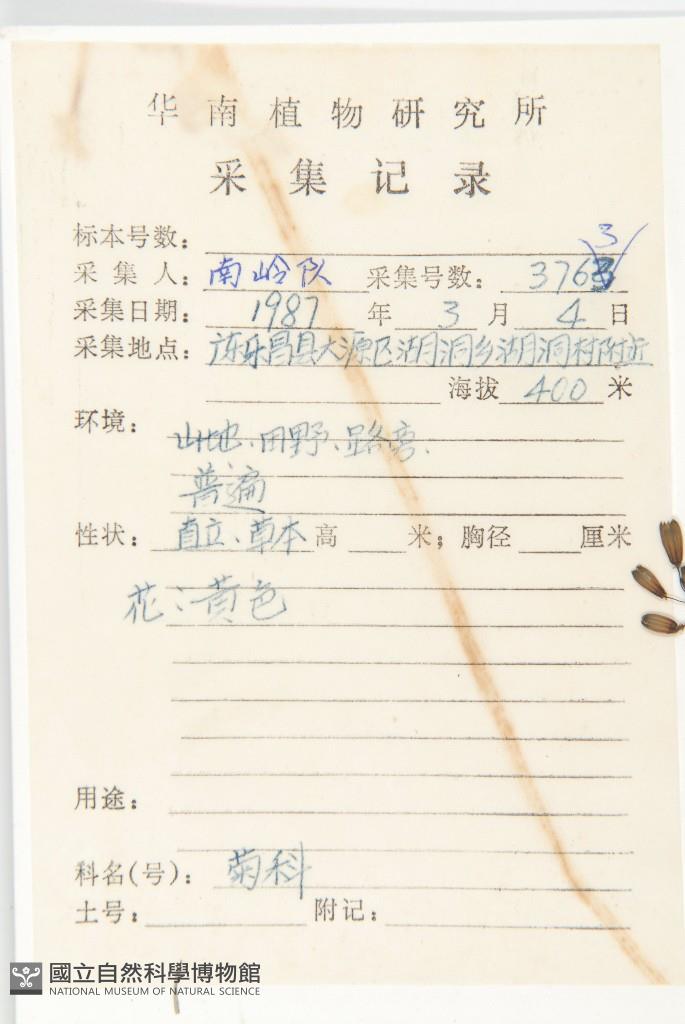 华南植物研究所
采集记录
标本号数:
采集人: 南岭队 采集号数: 3763
采集日期: 1987 年 3 月 4 日
采集地点: 广东乐昌县大源区湖洞乡湖洞村附近
海拔 400 米
环境: 山地、田野、路旁、
普遍
性状: 直立、草本 高 米; 胸径 厘米
花:黄色
用途:
科名(号): 菊科
土号: 附记:
國立自然科學博物館
NATIONAL MUSEUM OF NATURAL SCIENCE